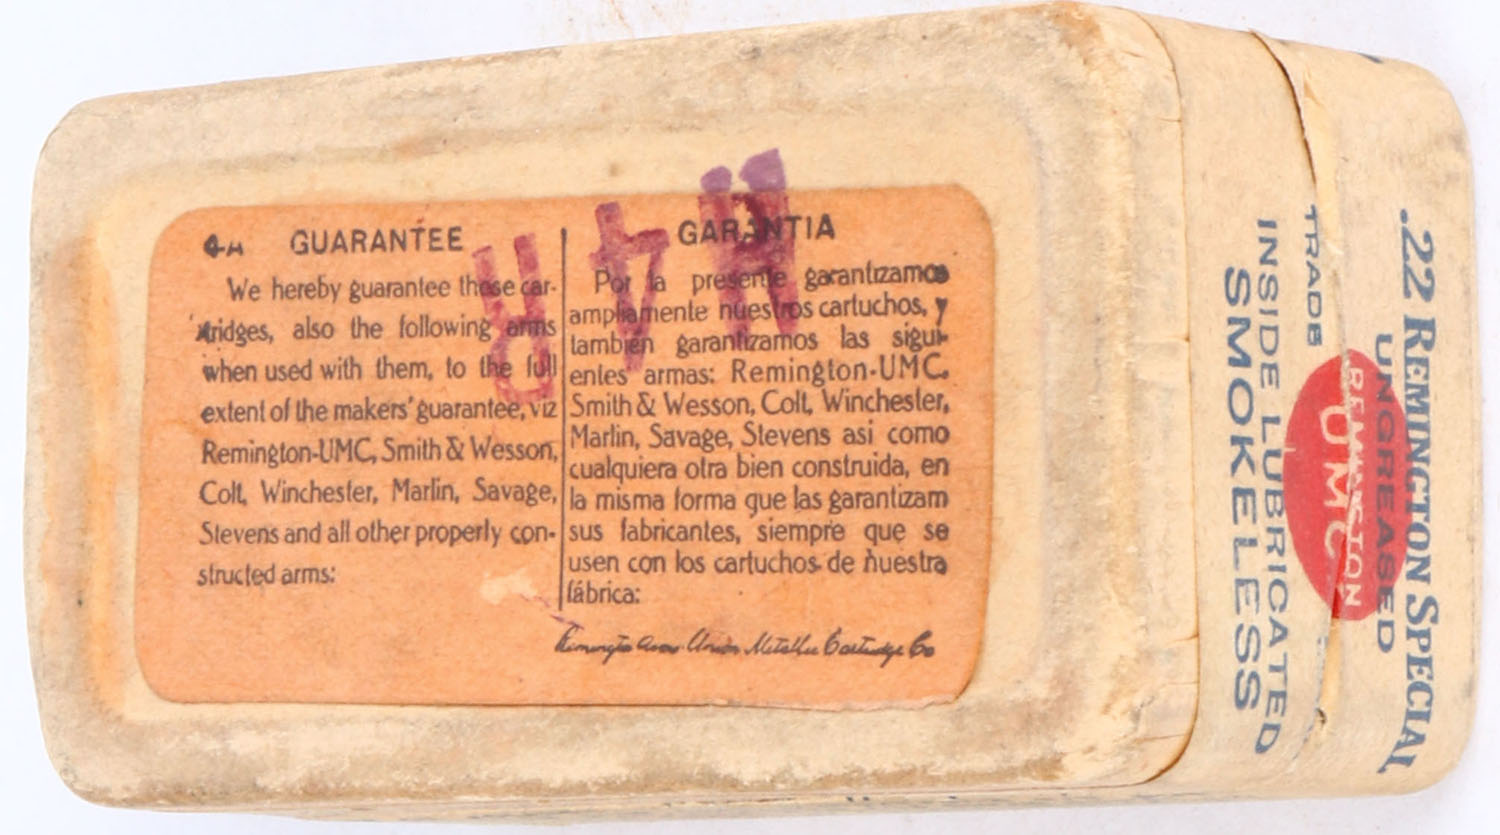 4-A GUARANTEE
We hereby guarantee these car-
tridges, also the following arms
when used with them, to the full
extent of the makers' guarantee, viz
Remington-UMC, Smith & Wesson,
Colt, Winchester, Marlin, Savage,
Stevens and all other properly con-
structed arms:
GARANTIA
Por la presente garantizamos
ampliamente nuestros cartuchos, y
tambien garantizamos las sigui-
entes armas: Remington-UMC.
Smith & Wesson, Colt, Winchester,
Marlin, Savage, Stevens asi como
cualquiera otra bien construida, en
la misma forma que las garantizam
sus fabricantes, siempre que se
usen con los cartuchos de nuestra
fábrica:
Remington Arms-Union Metallic Cartridge Co
.22 REMINGTON SPECIAL
UNGREASED
REMINGTON
UMC
TRADE
INSIDE LUBRICATED
SMOKELESS